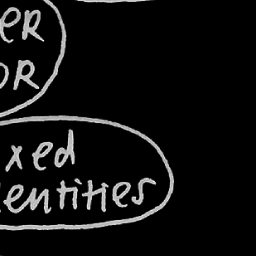 eR
OR
xed
entities